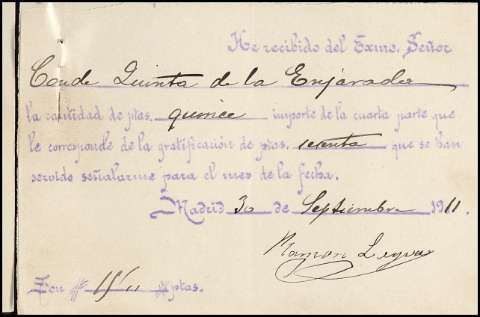 He recibido del Exmo. Señor
Conde Quinta de la Enjarada
la cantidad de ptas. quince importe de la cuarta parte que
le corresponde de la gratificación de ptas. sesenta que se han
servido señalarme para el mes de la fecha.
Madrid 30 de Septiembre 1911.
Ramon Leyva
Son # 15 # ptas.